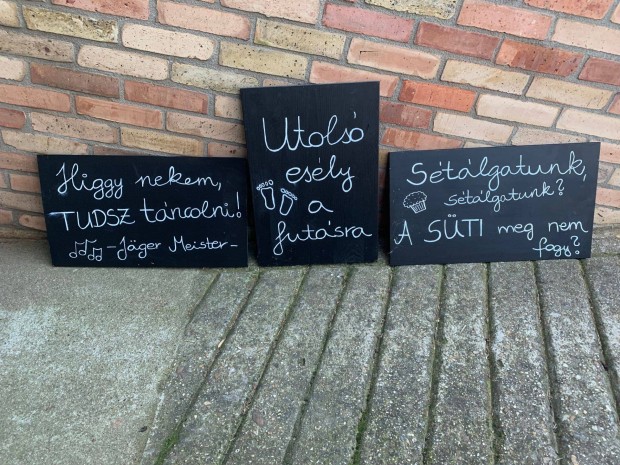 Higgy nekem,
TUDSZ táncolni!
-Jäger Meister-
Utolsó
esély
a
futásra
Sétálgatunk,
sétálgatunk?
A SÜTI meg nem
fogy?